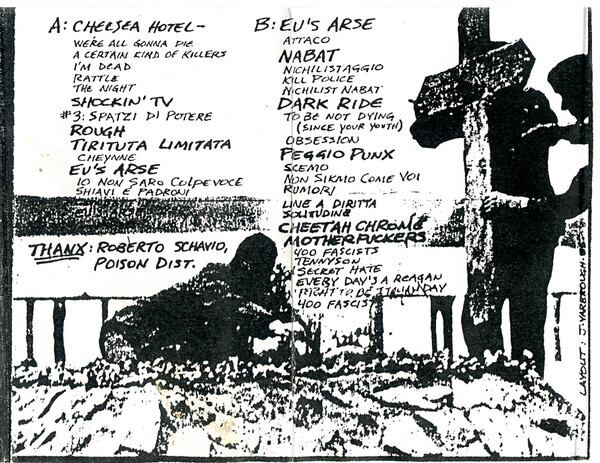 A: CHELSEA HOTEL-
WE'RE ALL GONNA DIE
A CERTAIN KIND OF KILLERS
I'M DEAD
RATTLE
THE NIGHT
SHOCKIN' TV
#3: SPATZI DI POTERE
ROUGH
TIRITUTA LIMITATA
CHEYNNE
EU'S ARSE
IO NON SARO COLPEVOCE
SHIAVI E PADRONI
THANX: ROBERTO SCHAVIO,
POISON DIST.
B: EU'S ARSE
ATTACO
NABAT
NICHILISTAGGIO
KILL POLICE
NICHILIST NABAT
DARK RIDE
TO BE NOT DYING
(SINCE YOUR YOUTH)
OBSESSION
PEGGIO PUNX
SCEMO
NON SIKMO COME VOI
RUMORI
LINE A DIRITTA
SOLITUDINE
CHEETAH CHROME
MOTHERFUCKERS
400 FASCISTS
TENNYSON
SECRET HATE
EVERY DAY'S A REAGAN
RIGHT TO BE ITALIAN DAY
400 FASCISTS
LAYOUT: J. YARBROUGH